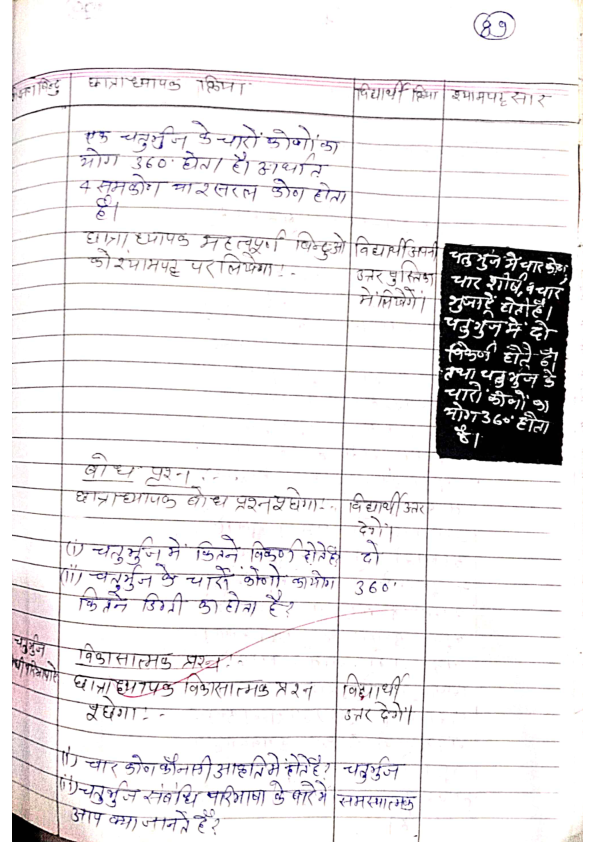 89
छात्राध्यापक क्रिया
विद्यार्थी क्रिया
श्यामपट्ट सार
एक चतुर्भुज के चारों कोणों का
योग 360° होता है। अर्थात
4 समकोण या 2 सरल कोण होता
है।
छात्राध्यापक महत्वपूर्ण बिन्दुओ
को श्यामपट्ट पर लिखेगा:-
विद्यार्थी अपनी
उत्तर पुस्तिका
में लिखेगें।
चतुर्भुज में चार कोण,
चार शीर्ष, व चार
भुजाएँ होती है।
चतुर्भुज में दो
विकर्ण होते है।
तथा चतुर्भुज के
चारों कोणों का
योग 360° होता
है।
बोध प्रश्न:-
छात्राध्यापक बोध प्रश्न पूछेगा:-
विद्यार्थी उत्तर
देगें।
(i) चतुर्भुज में कितने विकर्ण होते है?
दो
(ii) चतुर्भुज के चारों कोणों का योग
कितने डिग्री का होता है?
360°
चतुर्भुज
विकासात्मक प्रश्न:-
छात्राध्यापक विकासात्मक प्रश्न
पूछेगा:-
विद्यार्थी
उत्तर देगें।
(i) चार कोण कौनसी आकृति में होते है?
चतुर्भुज
(ii) चतुर्भुज संबंधि परिभाषा के बारे में
आप क्या जानते है?
समस्यात्मक